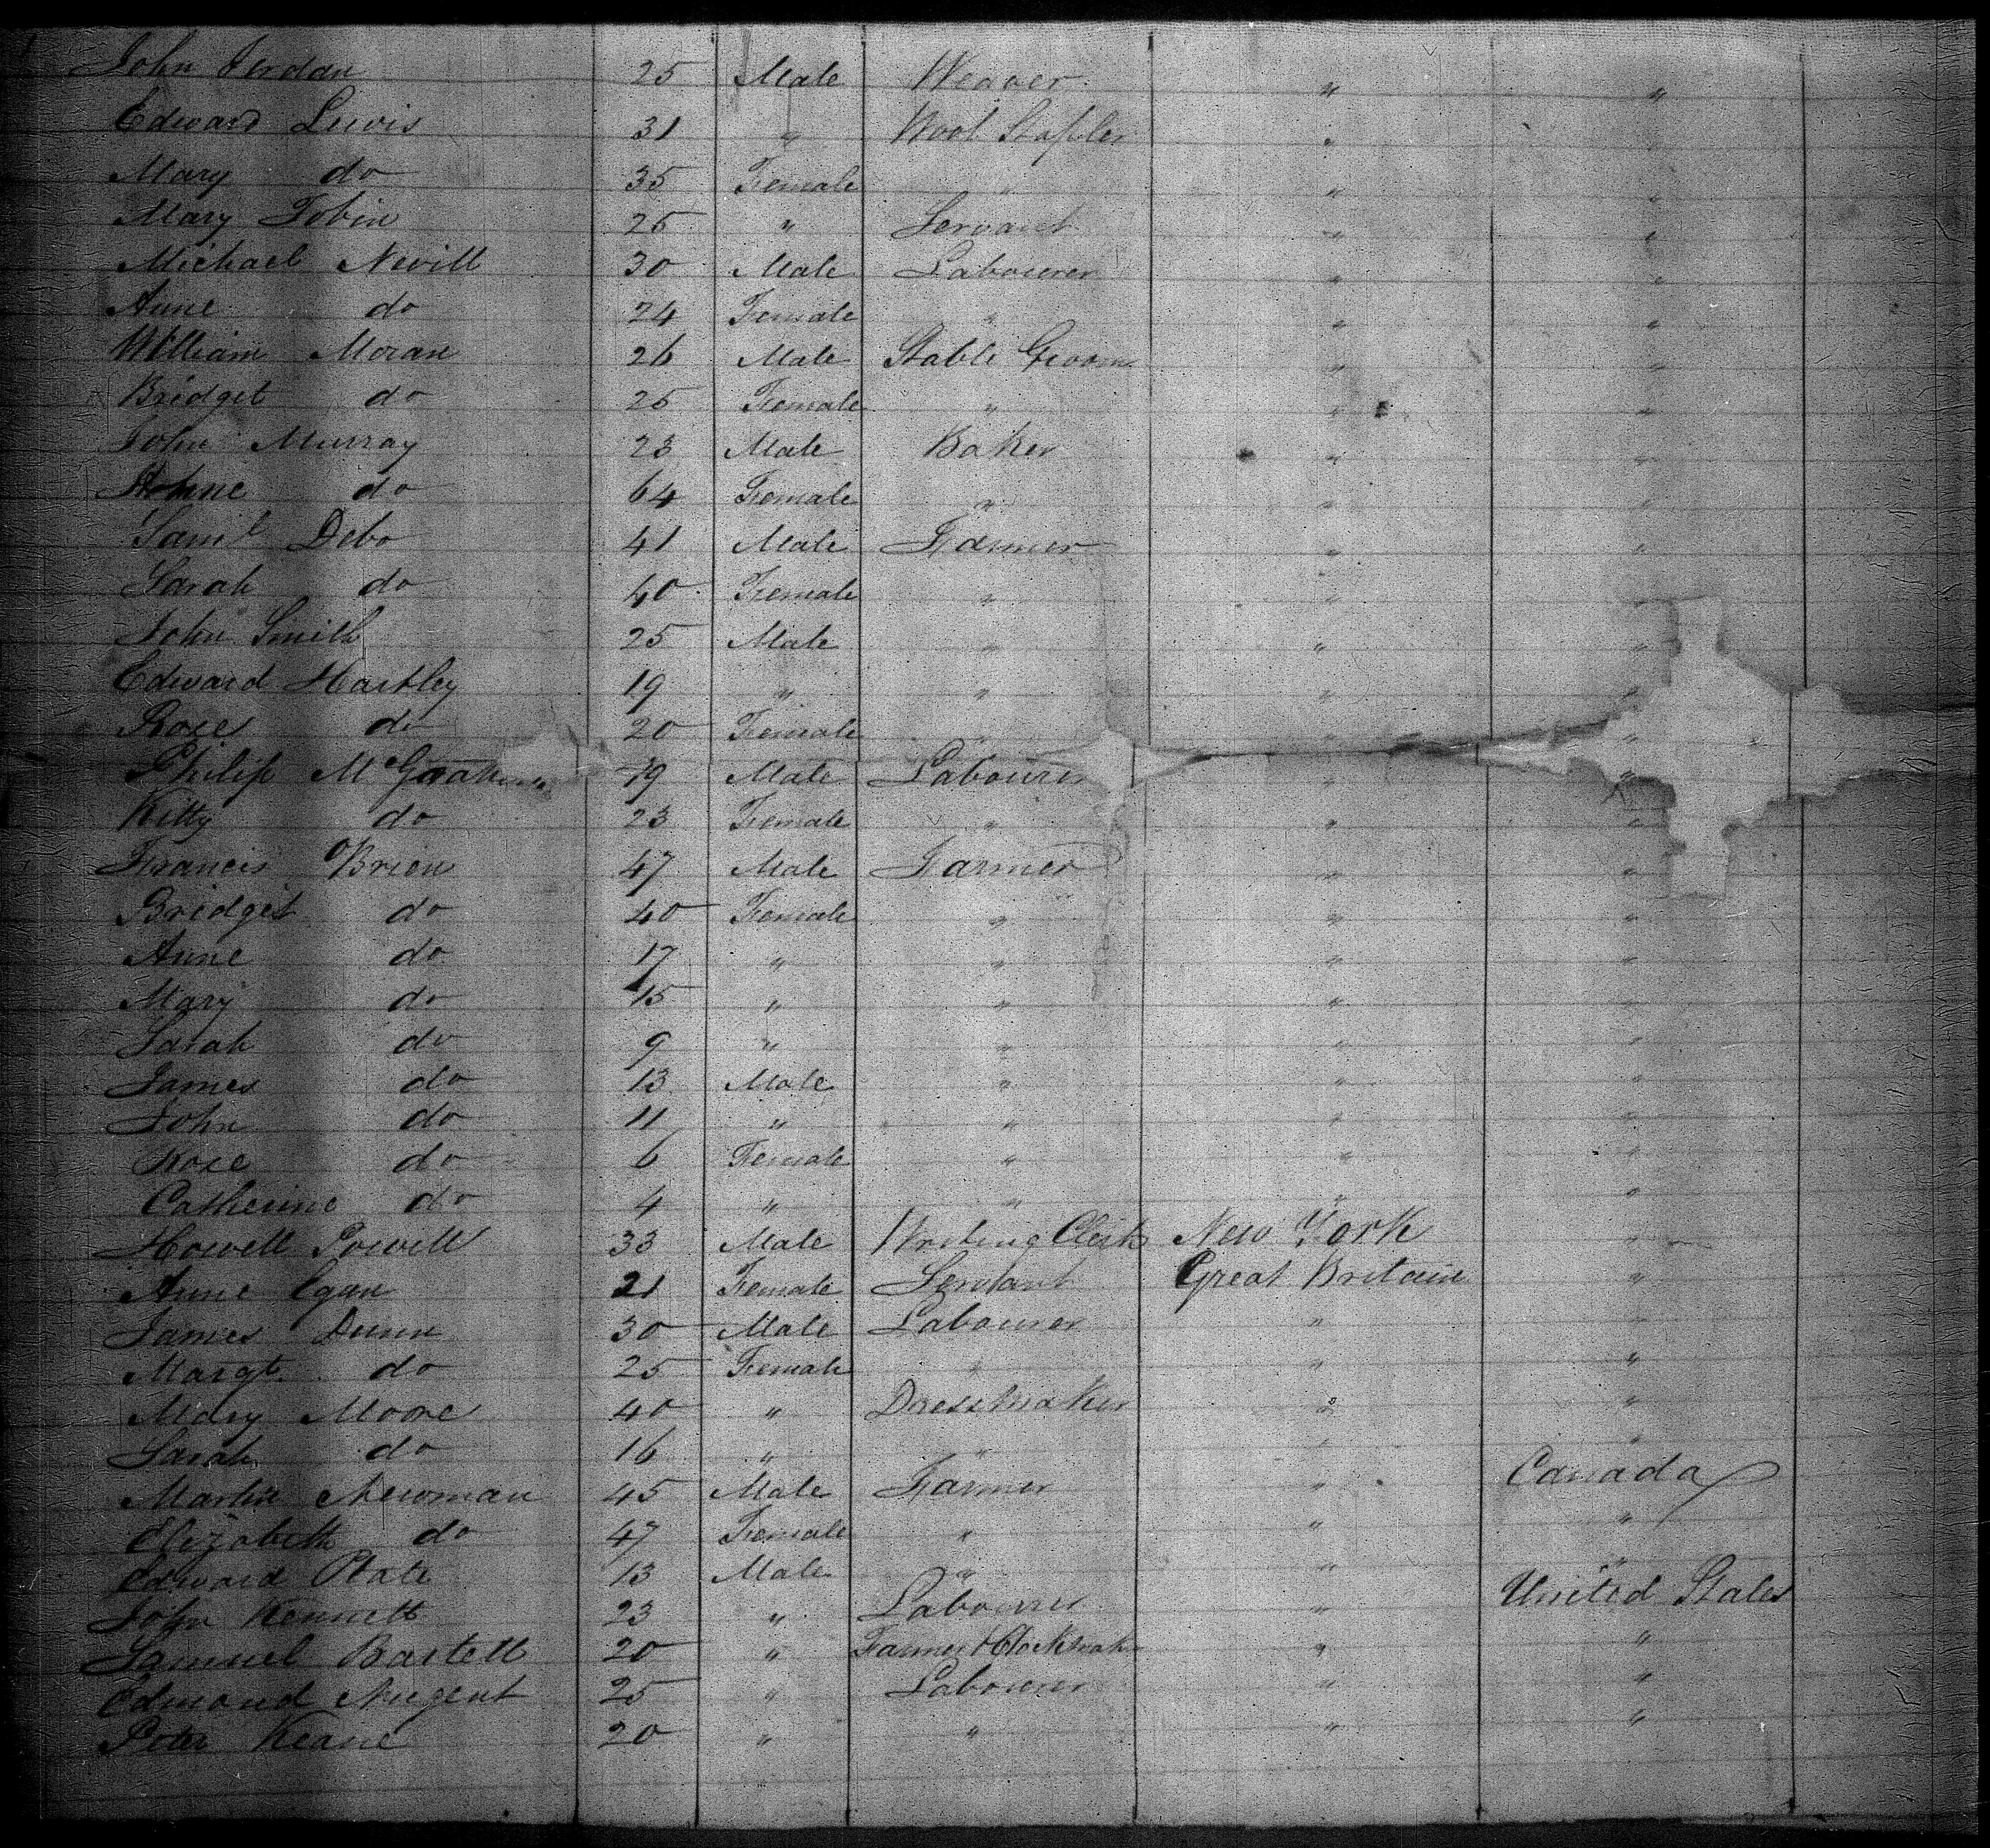 John Jordan 25 Male Weaver " "
Edward Lewis 31 " Wool Stapler " "
Mary do 35 Female " " "
Mary Tobin 25 " Servant " "
Michael Nevill 30 Male Labourer " "
Anne do 24 Female " " "
William Moran 26 Male Stable Groom " "
Bridget do 25 Female " " "
John Murray 23 Male Baker " "
do 64 Female " " "
Saml Debo 41 Male Farmer " "
Sarah do 40 Female " " "
John Smith 25 Male " " "
Edward Hartley 19 " " " "
Rose do 20 Female " " "
Philip 19 Male Labourer " "
Kitty do 23 Female " " "
Francis O'Brien 47 Male Farmer " "
Bridget do 40 Female " " "
Anne do 17 " " " "
Mary do 15 " " " "
Sarah do 9 " " " "
James do 13 Male " " "
John do 11 " " " "
Rose do 6 Female " " "
Catherine do 4 " " " "
Howell Powell 33 Male Writing Clerk New York "
Anne Egan 21 Female Servant Great Britain "
James Dunn 30 Male Labourer " "
Margt do 25 Female " " "
Mary Moore 40 " Dressmaker " "
Sarah do 16 " " " "
Martin Newman 45 Male Farmer " Canada
Elizabeth do 47 Female " " "
Edward Plate 13 Male " " "
John Kennett 23 " Labourer " United States
Samuel Bartett 20 " Farmer & Clockmak " "
Edmond Nugent 25 " Labourer " "
Peter Keane 20 " " " "